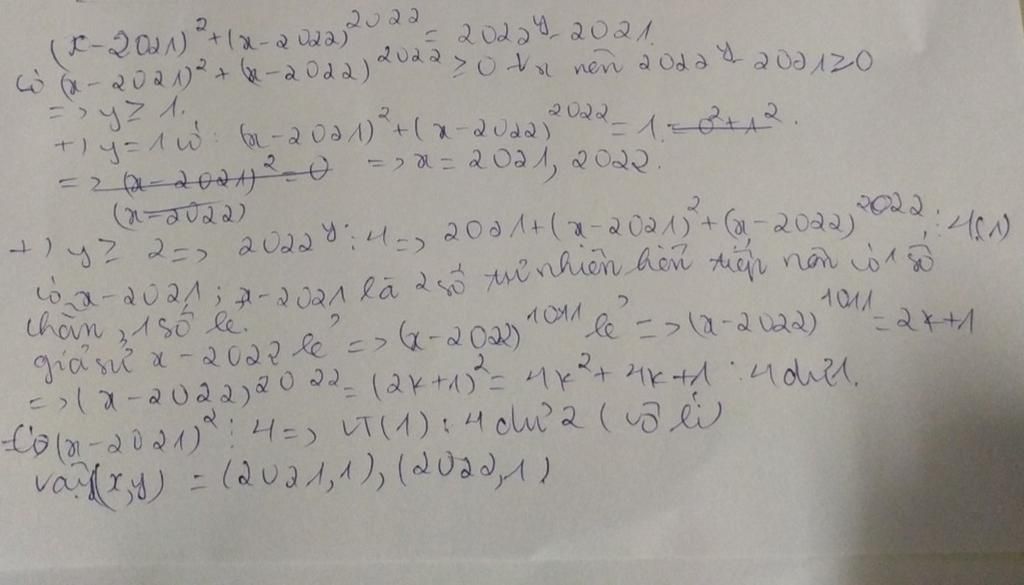 (x-2021)² + (x-2022)²⁰²² = 2022ʸ - 2021.
Có (x-2021)² + (x-2022)²⁰²² ≥ 0 ∀x nên 2022ʸ - 2021 ≥ 0
=> y ≥ 1.
+) y = 1 có: (x-2021)² + (x-2022)²⁰²² = 1. = 0² + 1².
=> (x-2021)² = 0 => x = 2021, 2022.
(x=2022)
+) y ≥ 2 => 2022ʸ ⋮ 4 => 2021 + (x-2021)² + (x-2022)²⁰²² ⋮ 4 (1)
Có x-2021; x-2021 là 2 số tự nhiên liên tiếp nên có 1 số
chẵn, 1 số lẻ.
giả sử x-2022 lẻ => (x-2022)¹⁰¹¹ lẻ => (x-2022)¹⁰¹¹ = 2k+1
=> (x-2022)²⁰²² = (2k+1)² = 4k² + 4k + 1 : 4 dư 1.
Có (x-2021)² ⋮ 4 => VT(1) : 4 dư 2 (vô lí)
Vậy (x,y) = (2021,1), (2022,1)